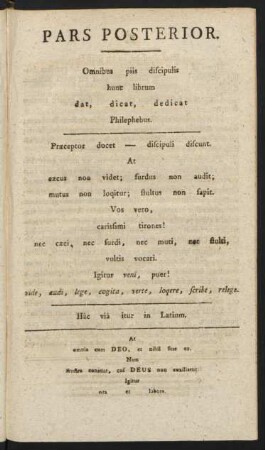 PARS POSTERIOR.
Omnibus piis diſcipulis
hunc librum
dat, dicat, dedicat
Philephebus.
Præceptor docet — diſcipuli diſcunt.
At
cæcus non videt; ſurdus non audit;
mutus non loqitur; ſtultus non ſapit.
Vos vero,
cariſſimi tirones!
nec cæci, nec ſurdi, nec muti, nec ſtulti,
vultis vocari.
Igitur veni, puer!
vide, audi, lege, cogita, verte, loqere, ſcribe, relege.
Hâc viâ itur in Latium.
At
omnia cum DEO, et nihil ſine eo.
Nam
fruſtra conatur, cui DEUS non
Igitur
ora et labora.